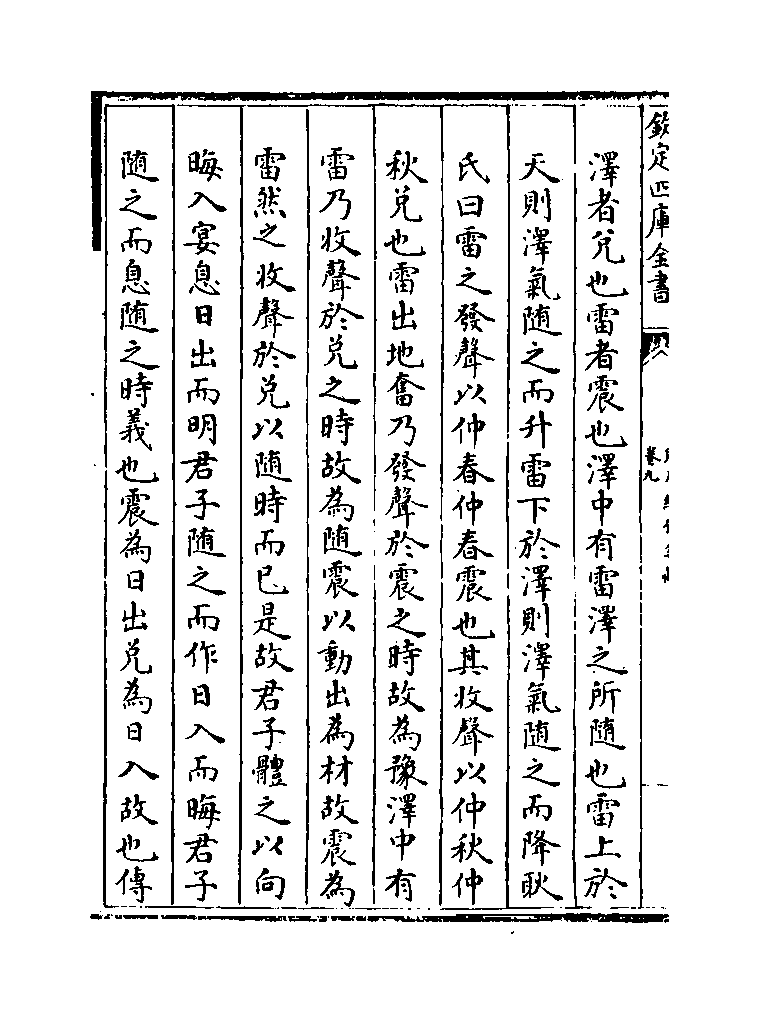 欽定四庫全書
卷九
澤者兌也雷者震也澤中有雷澤之所隨也雷上於
天則澤氣随之而升雷下於澤則澤氣随之而降耿
氏曰雷之發聲以仲春仲春震也其收聲以仲秋仲
秋兌也雷出地奮乃發聲於震之時故為豫澤中有
雷乃收聲於兌之時故為随震以動出為材故震為
雷然之收聲於兌以随時而已是故君子體之以向
晦入宴息日出而明君子随之而作日入而晦君子
随之而息随之時義也震為日出兌為日入故也傳